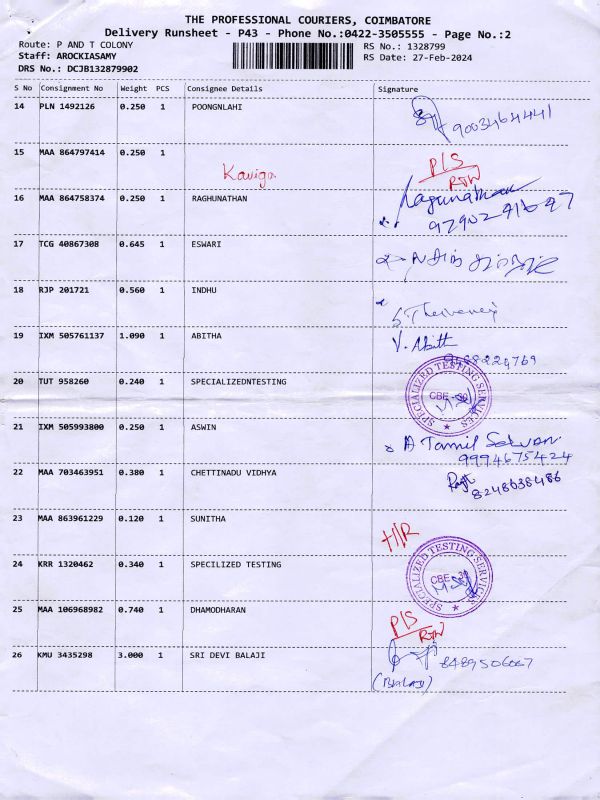 THE PROFESSIONAL COURIERS, COIMBATORE
Delivery Runsheet - P43 - Phone No.:0422-3505555 - Page No.:2
Route: P AND T COLONY RS No.: 1328799
Staff: AROCKIASAMY RS Date: 27-Feb-2024
DRS No.: DCJB132879902
S No Consignment No Weight PCS Consignee Details Signature
14 PLN 1492126 0.250 1 POONGNLAHI
9003464441
15 MAA 864797414 0.250 1
Kaviga P/S
RTW
16 MAA 864758374 0.250 1 RAGHUNATHAN Ragunathan
17 TCG 40867308 0.645 1 ESWARI
18 RJP 201721 0.560 1 INDHU
19 IXM 505761137 1.090 1 ABITHA V. Abith
20 TUT 958260 0.240 1 SPECIALIZEDNTESTING SPECIALIZED TESTING SERVICES
CBE - 30
21 IXM 505993800 0.250 1 ASWIN A Tamil Selvan.
9994675424
22 MAA 703463951 0.380 1 CHETTINADU VIDHYA
8248038486
23 MAA 863961229 0.120 1 SUNITHA
24 KRR 1320462 0.340 1 SPECILIZED TESTING SPECIALIZED TESTING SERVICES
CBE - 30
25 MAA 106968982 0.740 1 DHAMODHARAN P/S
RTW
26 KMU 3435298 3.000 1 SRI DEVI BALAJI 8489506067
(Balaji)